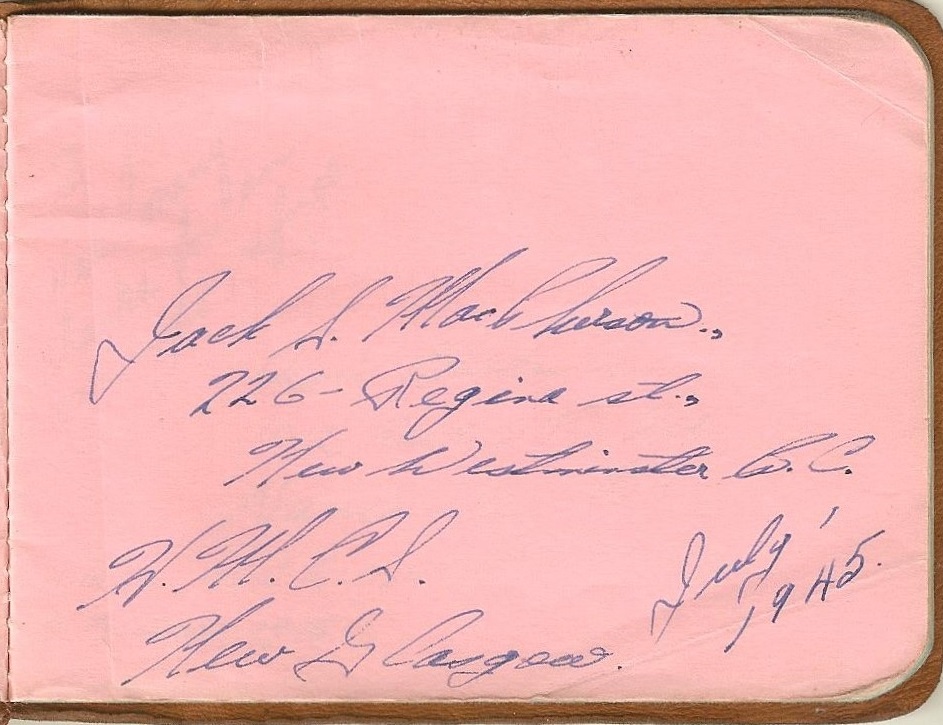 Jack S. MacPherson.,
226- Regina st.,
New Westminster B.C.
H.M.C.S.
New Glasgow.
July '
1945.